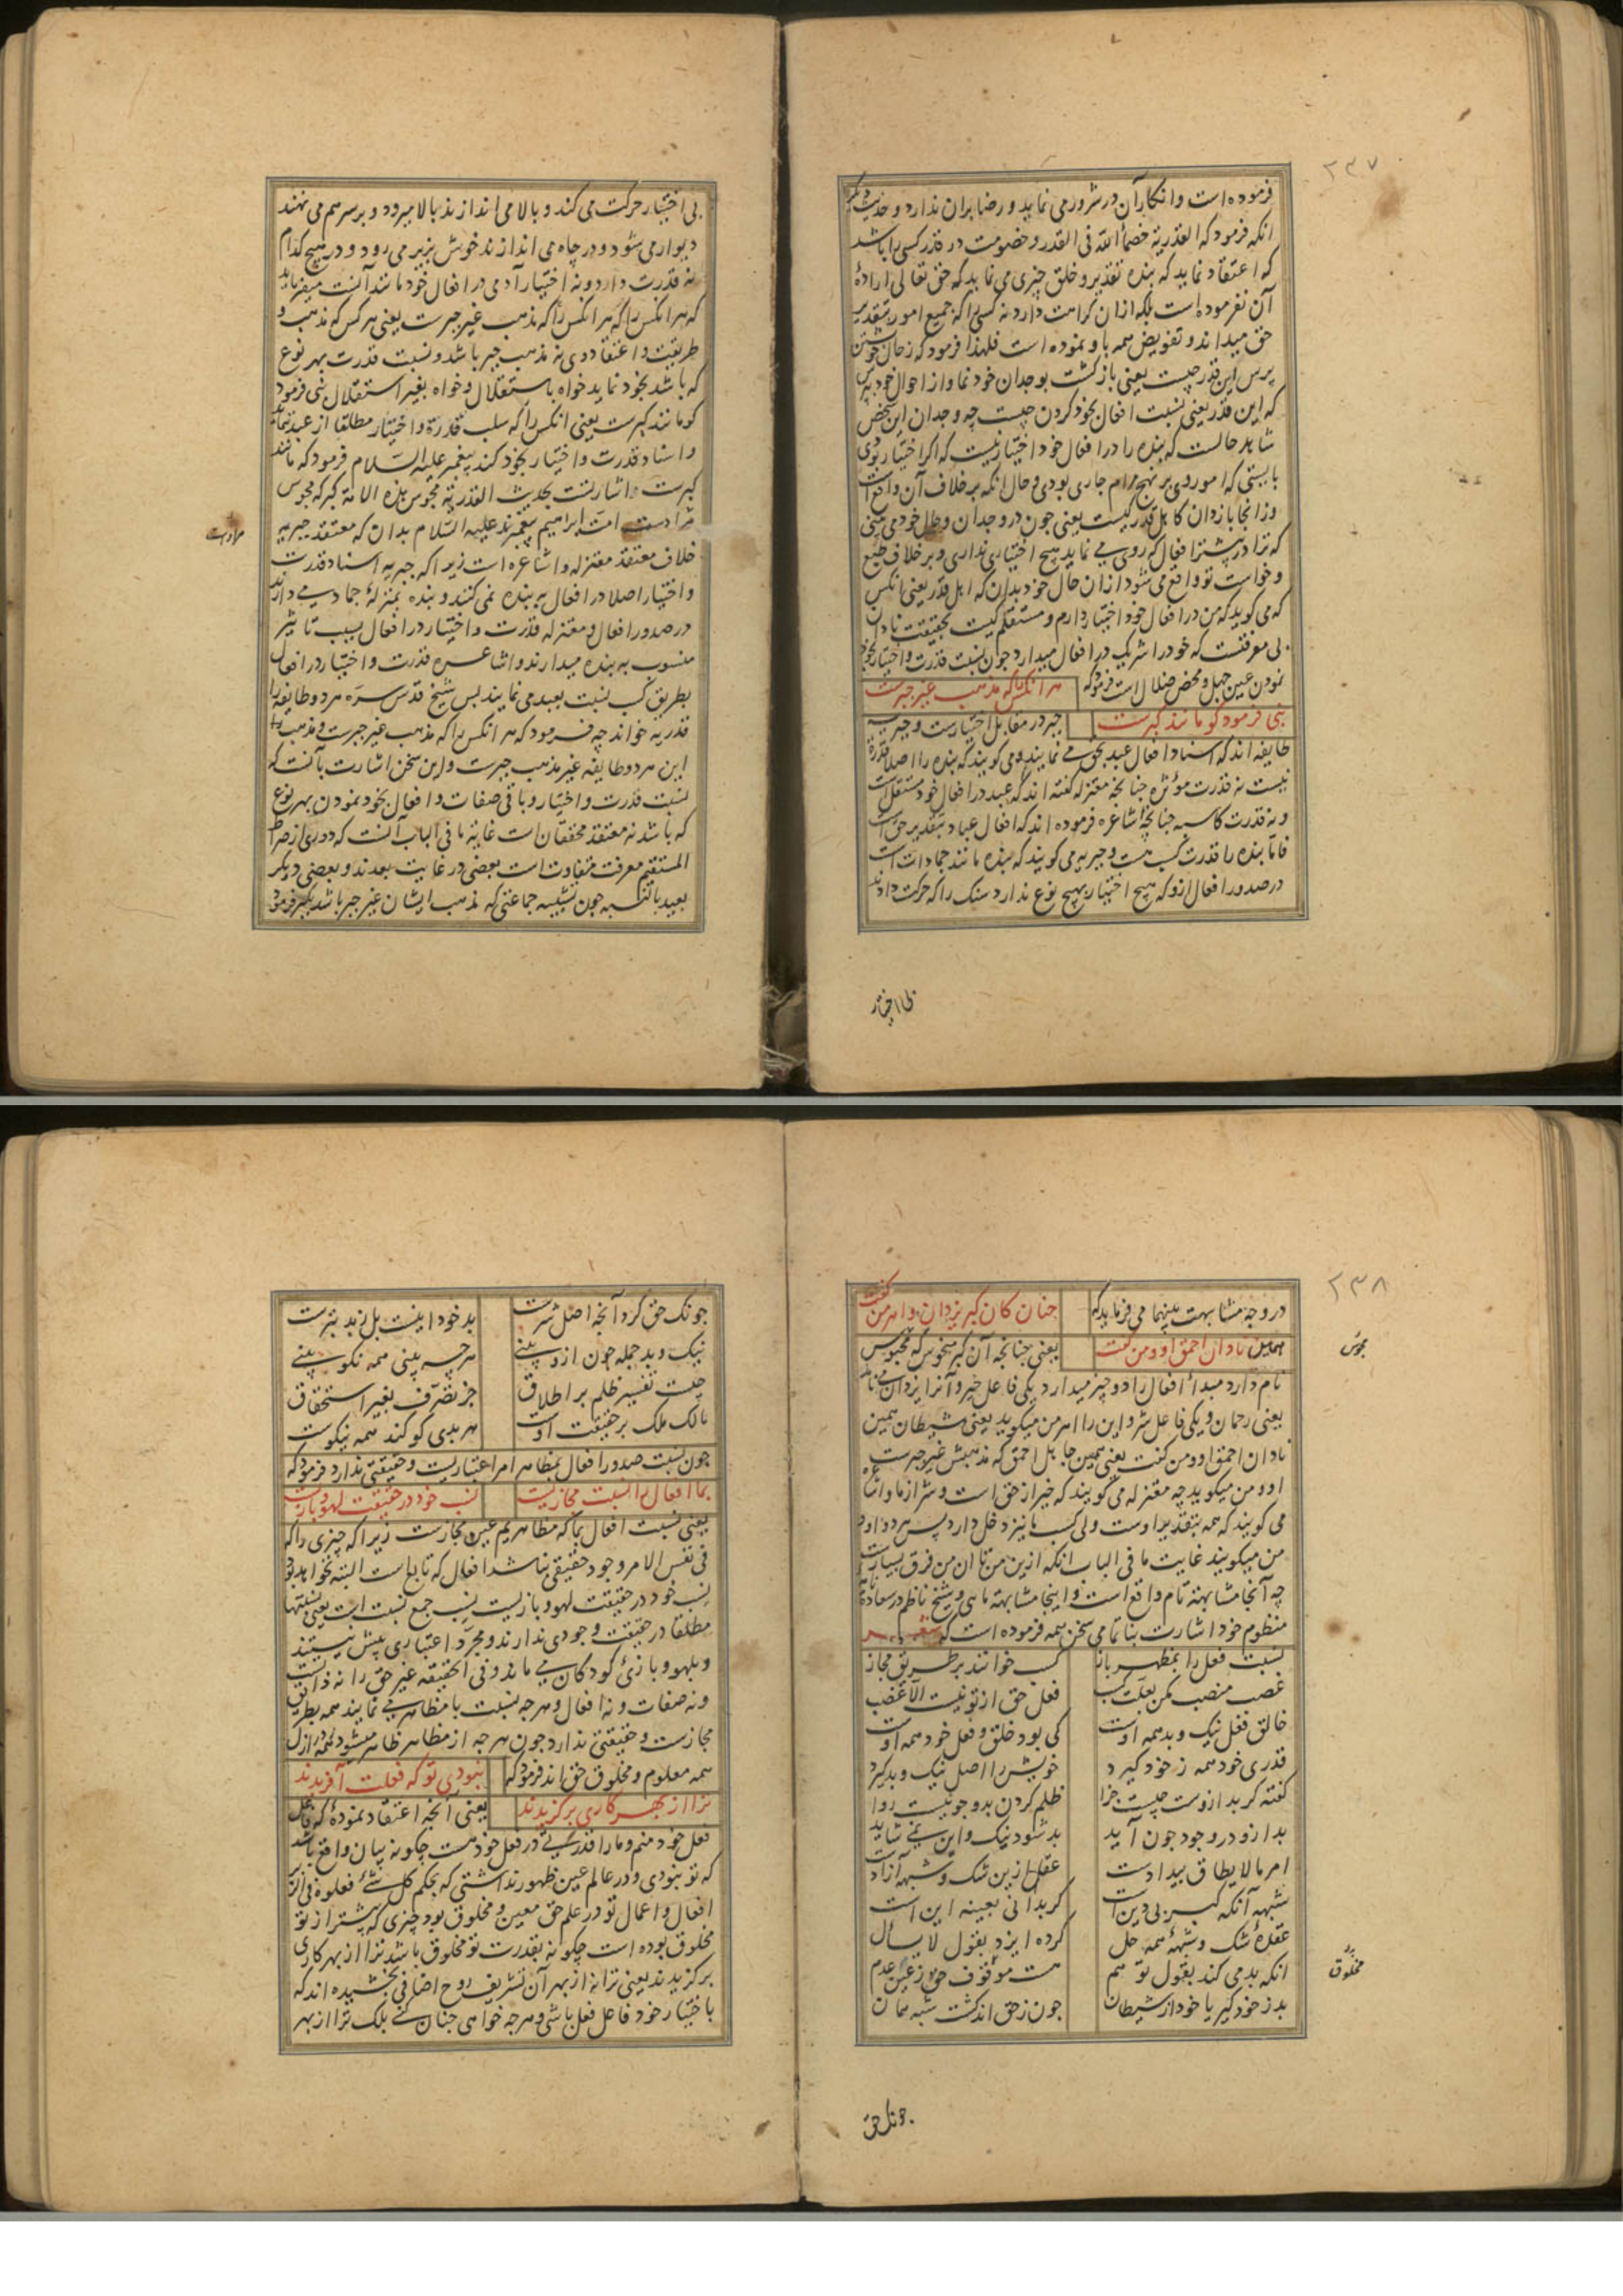 ۲۳۷
فرموده است و انکار آن در شرور می نماید و رضا بران ندارد و حدیث دیگر
انکه فرمود که القدریة خصماء الله فی القدر و خصومت در قدر کسی را باشد
که اعتقاد نماید که بنده تقدیر و خلق چیزی می نماید که حق تعالی اراده
آن نفرموده است بلکه ازان کراهت دارد نه کسی را که جمیع امور بتقدیر
حق میداند و تفویض همه باو نموده است فلهذا فرمود که ز حال خویشتن
پرس این قدر چیست یعنی بازگشت بوجدان خود نما و از احوال خود بپرس
که این قدر یعنی نسبت افعال بخود کردن چیست چه وجدان این شخص
شاهد حالست که بنده را در افعال خود اختیار نیست که اگر اختیار بودی
بایستی که امور وی بر نهج مرام جاری بودی و حال انکه برخلاف آن واقع است
وزانجا بازدان کاهل قدر کیست یعنی چون در وجدان و حال خود می بینی
که ترا در پیشتر افعال که روی می نماید هیچ اختیاری نداری و بر خلاف طبع
و خواست تو واقع می شود ازان حال خود بدان که اهل قدر یعنی انکس
که می گوید که من در افعال خود اختیار دارم و مستقلم کیست بحقیقت نادان
بی معرفتست که خود را شریک در افعال میدارد چون نسبت قدرت و اختیار بخود
نمودن عین جهل و محض ضلال است فرمود که هر انکس را که مذهب غیر جبرست
نبی فرمود کو مانند کبرست جبر در مقابل اختیارست و جبریه
طایفه اند که اسناد افعال عبد بحق می نمایند و می گویند که بنده را اصلا قدرة
نیست نه قدرت مؤثره چنانچه معتزله گفته اند که عبد در افعال خود مستقل است
و نه قدرت کاسبه چنانچه اشاعره فرموده اند که افعال عباد بتقدیر حق است
فاما بنده را قدرت کسب هست و جبریه می گویند که بنده مانند جمادات است
در صدور افعال ازو که هیچ اختیار بهیچ نوع ندارد سنک را که حرکت دادند
بی اختیار
بی اختیار حرکت می کند و بالا می اندازند بالا میرود و بر سر هم می نهند
دیوار می شود و در چاه می اندازند خوش بزیر می رود و در هیچ کدام
نه قدرت دارد و نه اختیار آدمی در افعال خود مانند آنست میفرماید
که هر انکس را که هر انکس را که مذهب غیر جبرست یعنی هر کس که مذهب و
طریقت و اعتقاد وی نه مذهب جبر باشد و نسبت قدرت بهر نوع
که باشد بخود نماید خواه باستقلال و خواه بغیر استقلال نبی فرمود
کو مانند کبرست یعنی انکس را که سلب قدرة و اختیار مطلقا از عبد ننماید
و اسناد قدرت و اختیار بخود کند پیغمبر علیه السلام فرمود که مانند
کبرست و اشارتست بحدیث القدریة مجوس هذه الامة کبر که مجوس
مرادست امت ابراهیم پیغمبرند علیه السلام بدان که معتقد جبریه
خلاف معتقد معتزله و اشاعره است زیرا که جبریه اسناد قدرت
و اختیار اصلا در افعال به بنده نمی کنند و بنده بمنزلهٔ جماد می دارند
در صدور افعال و معتزله قدرت و اختیار در افعال بسبب تاثیر
منسوب به بنده میدارند و اشاعره قدرت و اختیار در افعال
بطریق کسب نسبت بعبد می نمایند پس شیخ قدس سره هر دو طایفه را
قدریه خواند چه فرمود که هر انکس را که مذهب غیر جبرست و مذهب
این هر دو طایفه غیر مذهب جبرست و این سخن اشارت بآنست که
نسبت قدرت و اختیار و باقی صفات و افعال بخود نمودن بهر نوع
که باشد نه معتقد محققان است غایة ما فی الباب آنست که دوری از صراط
المستقیم معرفت متفاوت است بعضی در غایت بعدند و بعضی دیکر
بعید بالنسبه چون تشبیه جماعتی که مذهب ایشان غیر جبر باشد بکبر فرمود
مرادست
۲۳۸
در وجه مشابهت بینهما می فرماید که چنان کان کبر یزدان و اهرمن کفت
همین نادان احمق او و من کفت یعنی چنانچه آن کبر منحوس که مجوس
نام دارد مبدأ افعال را دو چیز میدارد یکی فاعل خیر و آنرا یزدان می نامد
یعنی رحمان و یکی فاعل شر و این را اهرمن میگوید یعنی شیطان همین
نادان احمق او و من گفت یعنی همین جاهل احمق که مذهبش غیر جبرست
او و من میگوید چه معتزله می گویند که خیر از حق است و شر از ما و اشاعره
می گویند که همه بتقدیر اوست ولی کسب ما نیز دخل دارد پس هر دو او و
من میگویند غایت ما فی الباب انکه ازین من تا ان من فرق بسیارست
چه آنجا مشابهة تام واقع است و اینجا مشابهة ما هی و شیخ ناظم در سعادة نامه
منظوم خود اشارت بتمامی سخن همه فرموده است که شعر
نسبت فعل را بمظهر باز کسب خوانند بر طریق مجاز
غصب منصب مکن بعلت کسب فعل حق از تو نیست الا غصب
خالق فعل نیک و بد همه اوست کی بود خلق و فعل خود همه اوست
قدری خود همه ز خود گیرد خویش را اصل نیک و بد گیرد
گفته گر بد ازوست چیست جزا ظلم کردن بدو چو نیست روا
بد ازو در وجود چون آید بد شود نیک و این نمی شاید
امر ما لا یطاق بیدادست عقل ازین شک و شبهه آزادست
شبهه آنکه کبر بی دین است گر بدانی بعینه این است
عقدهٔ شک و شبههٔ همه حل کرده ایزد بقول لا یسأل
انکه بد می کند بقول تو هم هست موقوف حق ز عین عدم
بد ز خود گیر یا خود از شیطان چون ز حق اند گشت شبه همان
مجوس
مخلوق
چونک حق
چونک حق کرد آنچه اصل شرست بد خود اینست بل ز بد بترست
نیک و بد جمله چون ازو بینی هرچه بینی همه نکو بینی
چیست تفسیر ظلم بر اطلاق جز تصرف بغیر استحقاق
مالک ملک بر حقیقت اوست هر بدی کو کند همه نیکوست
چون نسبت صدور افعال بمظاهر امر اعتباریست و حقیقتی ندارد فرمود که
بما افعال را نسبت مجازیست نسب خود در حقیقت لهو و بازیست
یعنی نسبت افعال بما که مظاهریم عین مجازست زیرا که چیزی را که
فی نفس الامر وجود حقیقی نباشد افعال که تابع است البته نخواهد بود
نسب خود در حقیقت لهو و بازیست نسب جمع نسبت است یعنی نسبتها
مطلقا در حقیقت وجودی ندارند و مجرد اعتباری بیش نیستند
و بلهو و بازی کودکان می ماند و فی الحقیقه غیر حق را نه ذاتیست
و نه صفات و نه افعال و هرچه نسبت با مظاهر می نمایند همه بطریق
مجازست و حقیقتی ندارد چون هرچه از مظاهر ظاهر میشود همه در ازل
همه معلوم و مخلوق حق اند فرمود که نبودی تو که فعلت آفریدند
ترا از بهر کاری برگزیدند یعنی انچه اعتقاد نمودهٔ که فاعل
فعل خود منم و ما را قدرتی در فعل خود هست چکونه بیان واقع باشد
که تو نبودی و در عالم عین ظهور نداشتی که بحکم کل شئ فعلوه فی الزبر
افعال و اعمال تو در علم حق معین و مخلوق بود چیزی که پیشتر از تو
مخلوق بوده است چکونه بقدرت تو مخلوق باشد ترا از بهر کاری
برگزیدند یعنی ترا نه از بهر آن تشریف روح اضافی بخشیده اند که
باختیار خود فاعل فعل باشی و هرچه خواهی چنان کنی بلک ترا از بهر